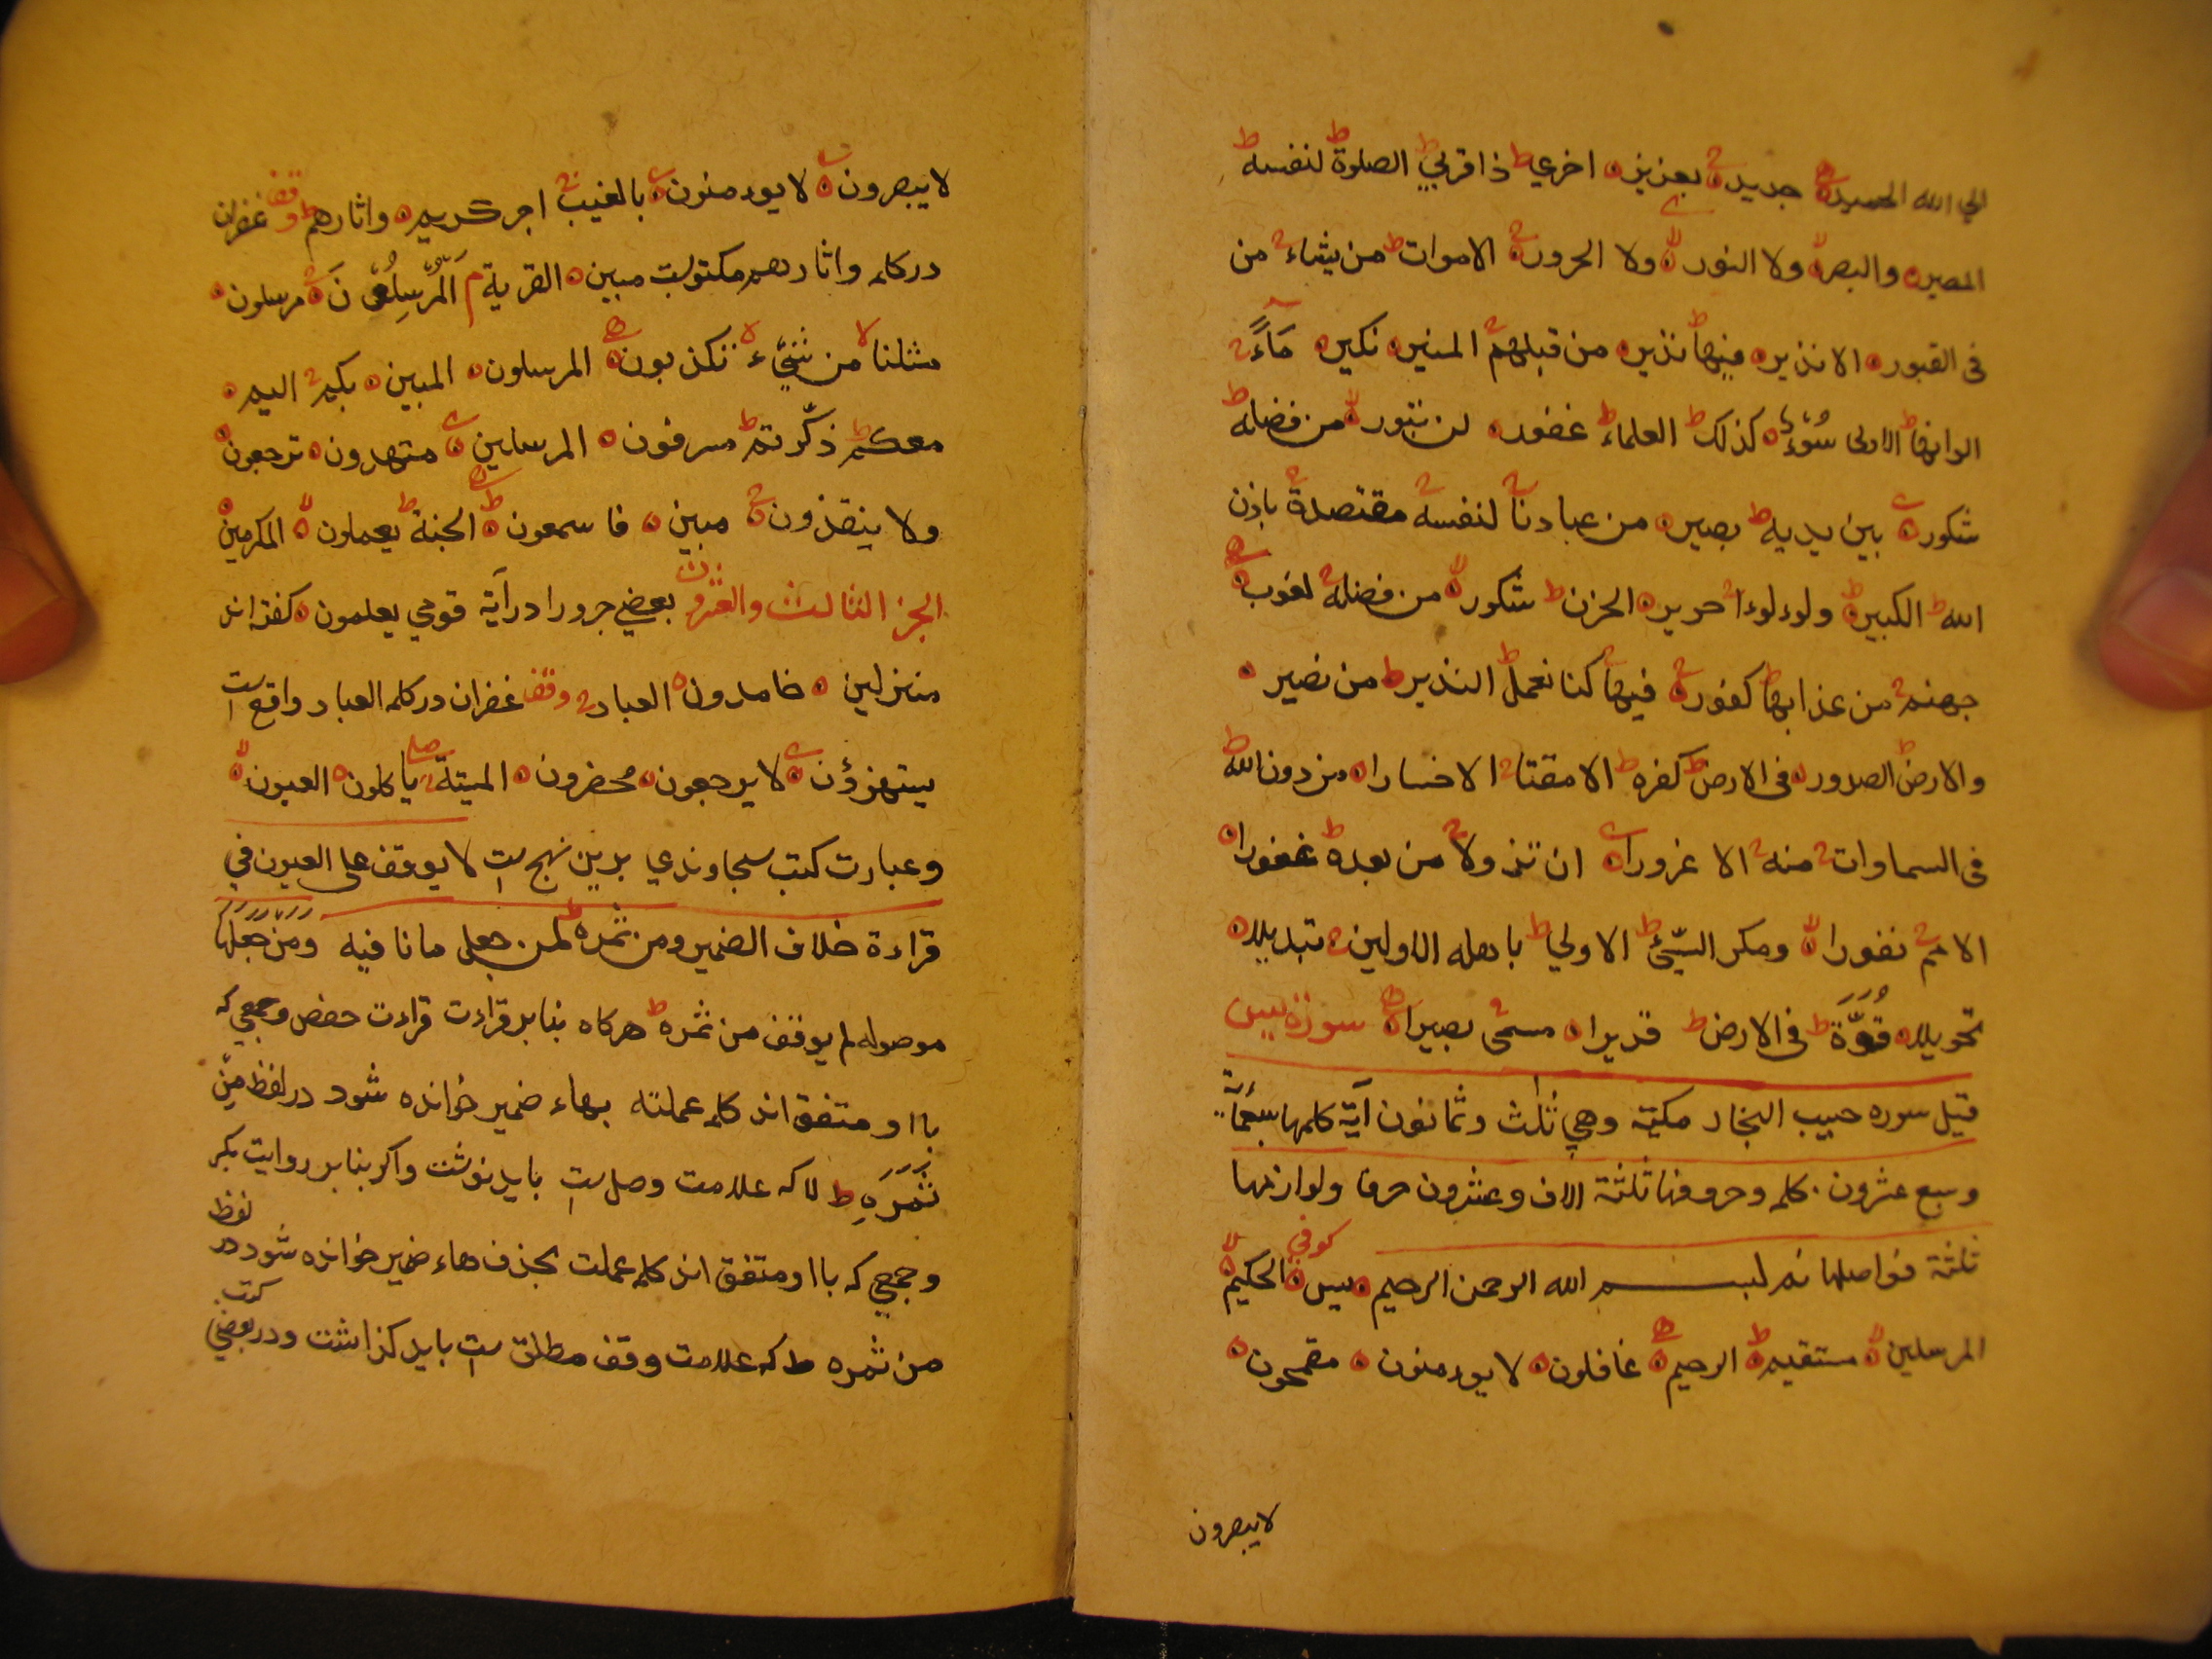 الي الله الحميد ه جديد ه بعزيز ه اخري ط ذا قربي ط الصلوة ط لنفسه ط
المصير ه والبصر ه ولا النور ه ولا الحرور ه الاموات ط من يشاء من
في القبور ه الا نذير ه فيها نذير ه من قبلهم المنير ه نكير ه مآءً
الوانها ط الاولي سُوْءُ ه كذلك ط العلماء ط غفور ه لن تبور ه من فضله ط
شكور ه بين يديه ط بصير ه من عبادنا لنفسه مقتصدة باذن
الله ط الكبير ه ولوءلوءا حرير ه الحزن ط شكور ه من فضله لغوب ه
جهنم من عذابها ط كفور ه فيها كنا نعمل ط النذير ط من نصير ه
والارض ط الصدور ه في الارض ط كفره ط الا مقتا الا خسارا ه من دون الله ط
في السماوات منه الا غرورا ه ان تزولا من بعده ط غفورا ه
الامم نفورا ه ومكر السّيّئ ط الا ولي ط باهله الاولين تبديلا ه
تحويلا ه قُوَّة ط في الارض ط قديرا ه مسمي بصيرا ه سورة يس
قيل سوره حبيب النجار مكية وهي ثلث وثمانون آية كلمها سبعمأئة
وسبع عشرون كلمه وحروفها ثلثة الاف وعشرون حرفا ولوازمها
ثلثة فواصلها نم بسم الله الرحمن الرحيم ه يس ه كوفي الحكيم ه
المرسلين ه مستقيم ه الرحيم ه غافلون ه لا يوءمنون ه مقمحون ه
لا يبصرون
لا يبصرون ه لا يوءمنون ه بالغيب اجر كريم ه واثارهم ط وقف غفران
در كلمه واثارهم مكتوبست مبين ه القرية م المُرسلُون ه مرسلون ه
مثلنا لا من شيء لا تكذبون ه المرسلون ه المبين ه بكم اليم ه
معكم ط ذكّرتم ط مسرفون ه المرسلين ه مهتدون ه ترجعون ه
ولا ينقذون ه مبين ه فاسمعون ه الجنة ط يعملون ه المكرمين ه
الجز الثالث والعشرون بعضي جرو را در آية قومي يعلمون ه كفته اند
منزلين ه خامدون ه العباد وقف غفران در كلمه العباد واقع است
يستهزؤن ه لا يرجعون ه محضرون ه الميتة صلے ياكلون ه العيون ه
وعبارت كتب سجاوندي بدين نهج است لا يوقف علي العيون في
قراءة خلاف الضمير ومن ثمره ط لمن جعل ما نافيه ومن جعلها
موصوله لم يوقف من ثمره ط هركاه بنابر قراءت قراءت حفص وجمعي كه
با او متفق اند كلمه عملته بهاء ضمير خوانده شود در لفظ مِن
ثَمَرَهِ ط لا كه علامت وصل است بايد نوشت واكر بنابر روايت بكر
وجمعي كه با او متفق اند كلمه عملت بحذف هاء ضمير خوانده شود در لفظ
من ثمره ط كه علامت وقف مطلق است بايد كذاشت ودر بعضي كتب